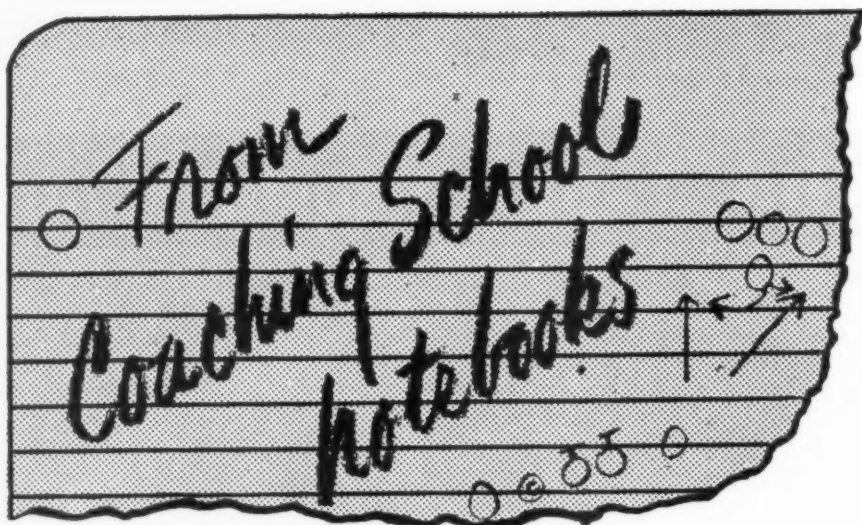 From
Coaching School
notebooks